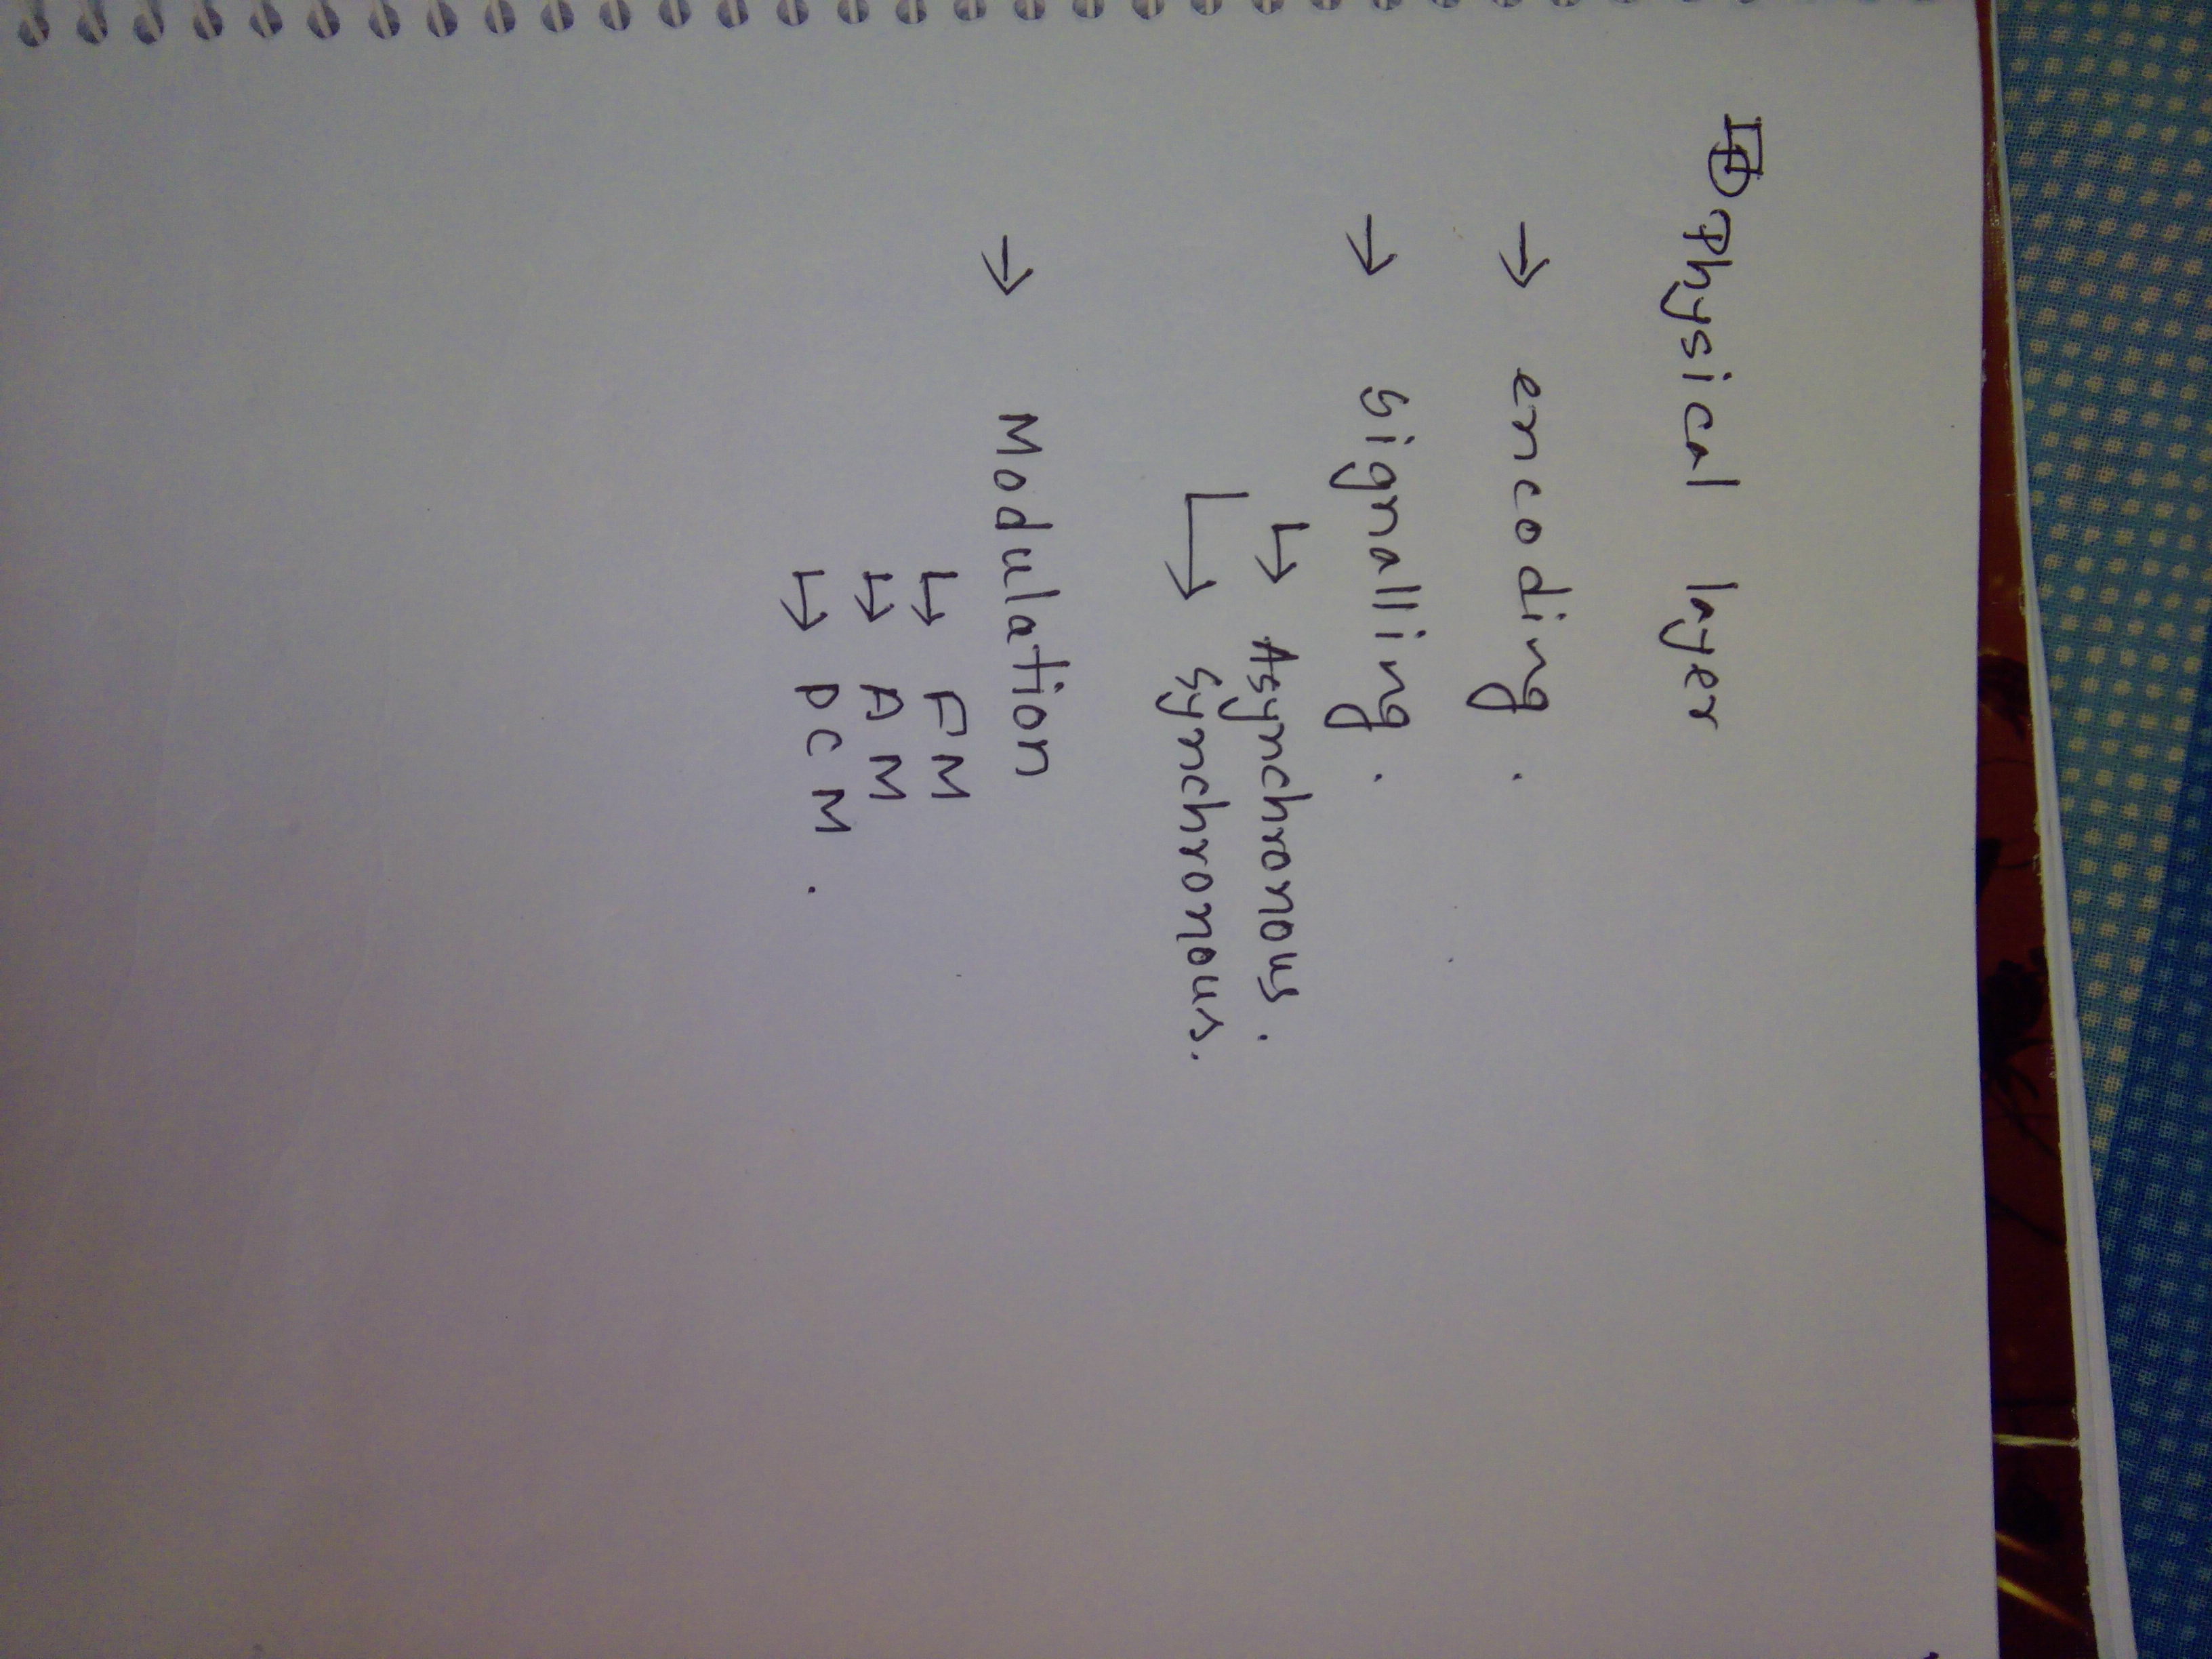 Physical layer
→ encoding.
→ Signalling.
↳ Asynchronous.
↳ Synchronous.
→ Modulation
↳ FM
↳ AM
↳ PCM.